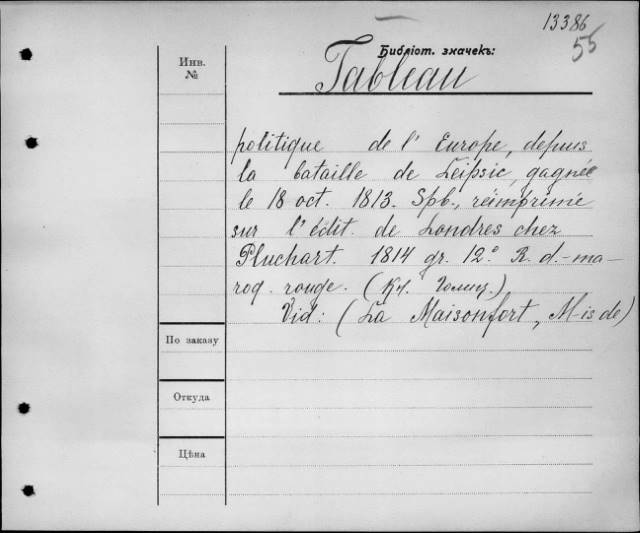 13386
55
Библіот. значекъ:
Инв.
№
Tableau
politique de l' Europe, depuis
la bataille de Leipsic, gagnée
le 18 oct. 1813. Spb., réimprimé
sur l'édit. de Londres chez
Pluchart. 1814 gr. 12° R. d.-ma-
roq. rouge. (Кн. Голиц.)
Vid: (La Maisonfort, M-is de)
По заказу
Откуда
Цѣна